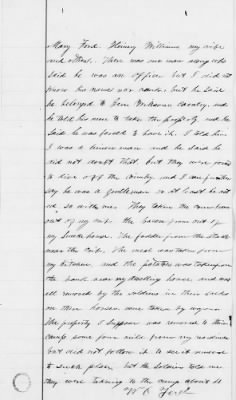 Mary Ford. Henry Williams my wife
and others. There was one man among who
said he was an officer but I did not
know his name nor rank, but he said
he belonged to Genl Cavalry, and
he told his men to take the property, and he
said he was forced to have it. I told him
I was a Union man and he said he
did not doubt that, but they were forced
to live off the country and I am
say he was a gentleman or at least he acted
so with me. They taken the corn from
out of my crib. The bacon from out of
my Smoke house. The fodder from the stack
near the Crib. The meal was taken from
my kitchen, and the potatoes was taken from
the bank near my dwelling house, and was
all removed by the soldiers in their sacks
on their horses. none taken by wagons
The property I suppose was removed to their
camps some four mile from my residence
but did not follow it to see it removed
to such place, but the Soldiers told me
they were taking to the camp
W. R. Ford